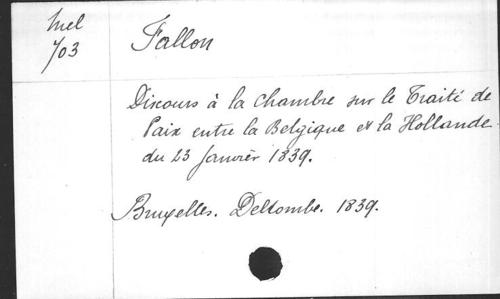 Mel
703
Fallon
Discours à la chambre sur le Traité de
Paix entre la Belgique et la Hollande
du 23 Janvier 1839.
Bruxelles. Deltombe. 1839.